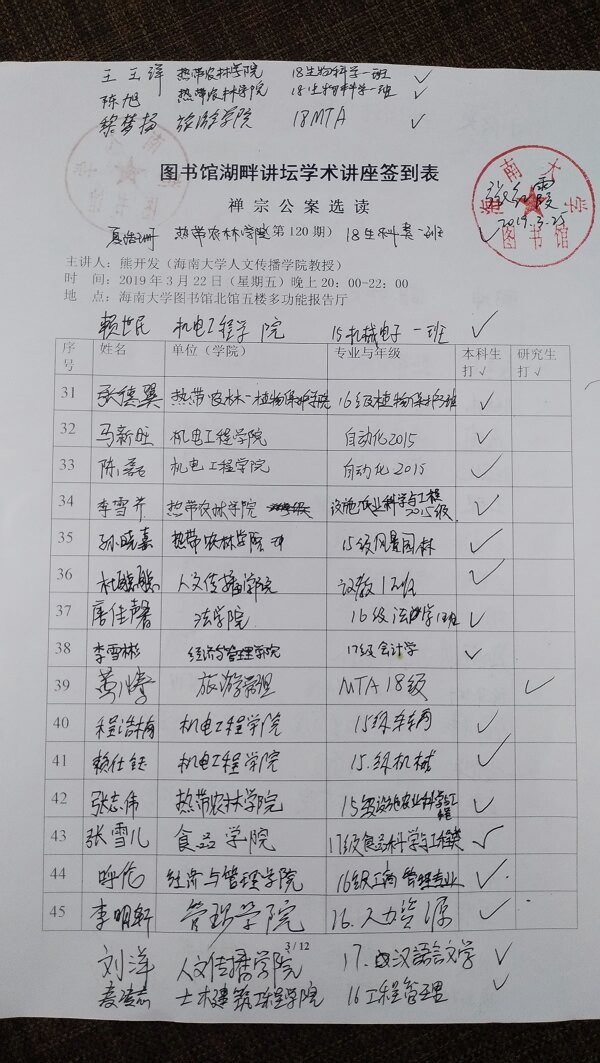 王玉洋 热带农林学院 18生物科学一班 ✓
陈旭 热带农林学院 18生物科学一班 ✓
黎梦杨 旅游学院 18MTA ✓
图书馆湖畔讲坛学术讲座签到表
海南大学
图书馆
2019.3.25
禅宗公案选读
热带农林学院 (第120期) 18生科类一班 ✓
主讲人：熊开发（海南大学人文传播学院教授）
时 间：2019年3月22日（星期五）晚上20：00-22：00
地 点：海南大学图书馆北馆五楼多功能报告厅
赖世民 机电工程学院 15机械电子一班 ✓
序号 姓名 单位（学院） 专业与年级 本科生打✓ 研究生打✓
31 张德翼 热带农林-植物保护学院 16级植物保护班 ✓
32 马新旺 机电工程学院 自动化2015 ✓
33 陈磊 机电工程学院 自动化2015 ✓
34 李雪芥 热带农林学院 设施农业科学与工程2015级 ✓
35 孙晓嘉 热带农林学院 15级风景园林 ✓
36 杜聪聪 人文传播学院 汉教1班 ✓
37 唐佳馨 法学院 16级法学 ✓
38 李雪彬 经济与管理学院 17级会计学 ✓
39 旅游管理 MTA18级 ✓
40 程浩楠 机电工程学院 15级车辆 ✓
41 赖仕钰 机电工程学院 15.级机械 ✓
42 张志伟 热带农林学院 15级设施农业科学与工程 ✓
43 张雪儿 食品学院 17级食品科学与工程类 ✓
44 呼伦 经济与管理学院 16级工商管理专业 ✓
45 李明轩 管理学院 16.人力资源 ✓
3/12
刘洋 人文传播学院 17.汉語言文学 ✓
土木建筑工程学院 16工程管理 ✓